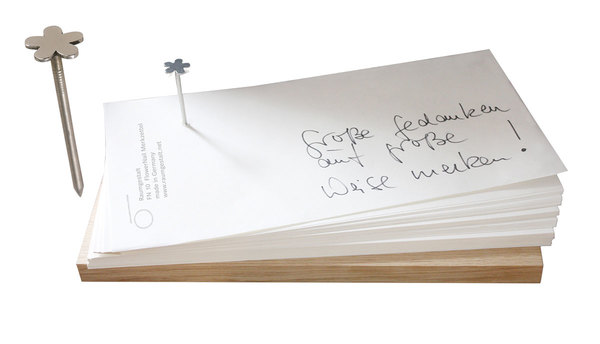 Große Gedanken
auf große
Weise merken!
Raumgestalt
FN 10 Flowernail Merkzettel
made in Germany
www.raumgestalt.net